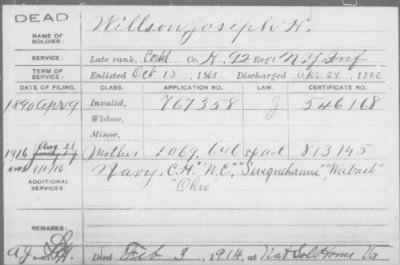 DEAD
NAME OF SOLDIER: Willson, Joseph H.
SERVICE: Late rank, Co. H, 92 Reg't N.Y. Inf
TERM OF SERVICE: Enlisted Oct 15, 1861 Discharged 1862
DATE OF FILING. CLASS. APPLICATION NO. LAW. CERTIFICATE NO.
1890 Apr 19 Invalid, 767358 J 546168
Widow,
Minor,
1916 Aug 21 Mother 1069,646 813145
ADDITIONAL SERVICES: Navy, C.H. "N.C.," Susquehanna," "Wabash"
"Ohio"
REMARKS:
Died Feb 3, 1914, at Nat Sol Home Va